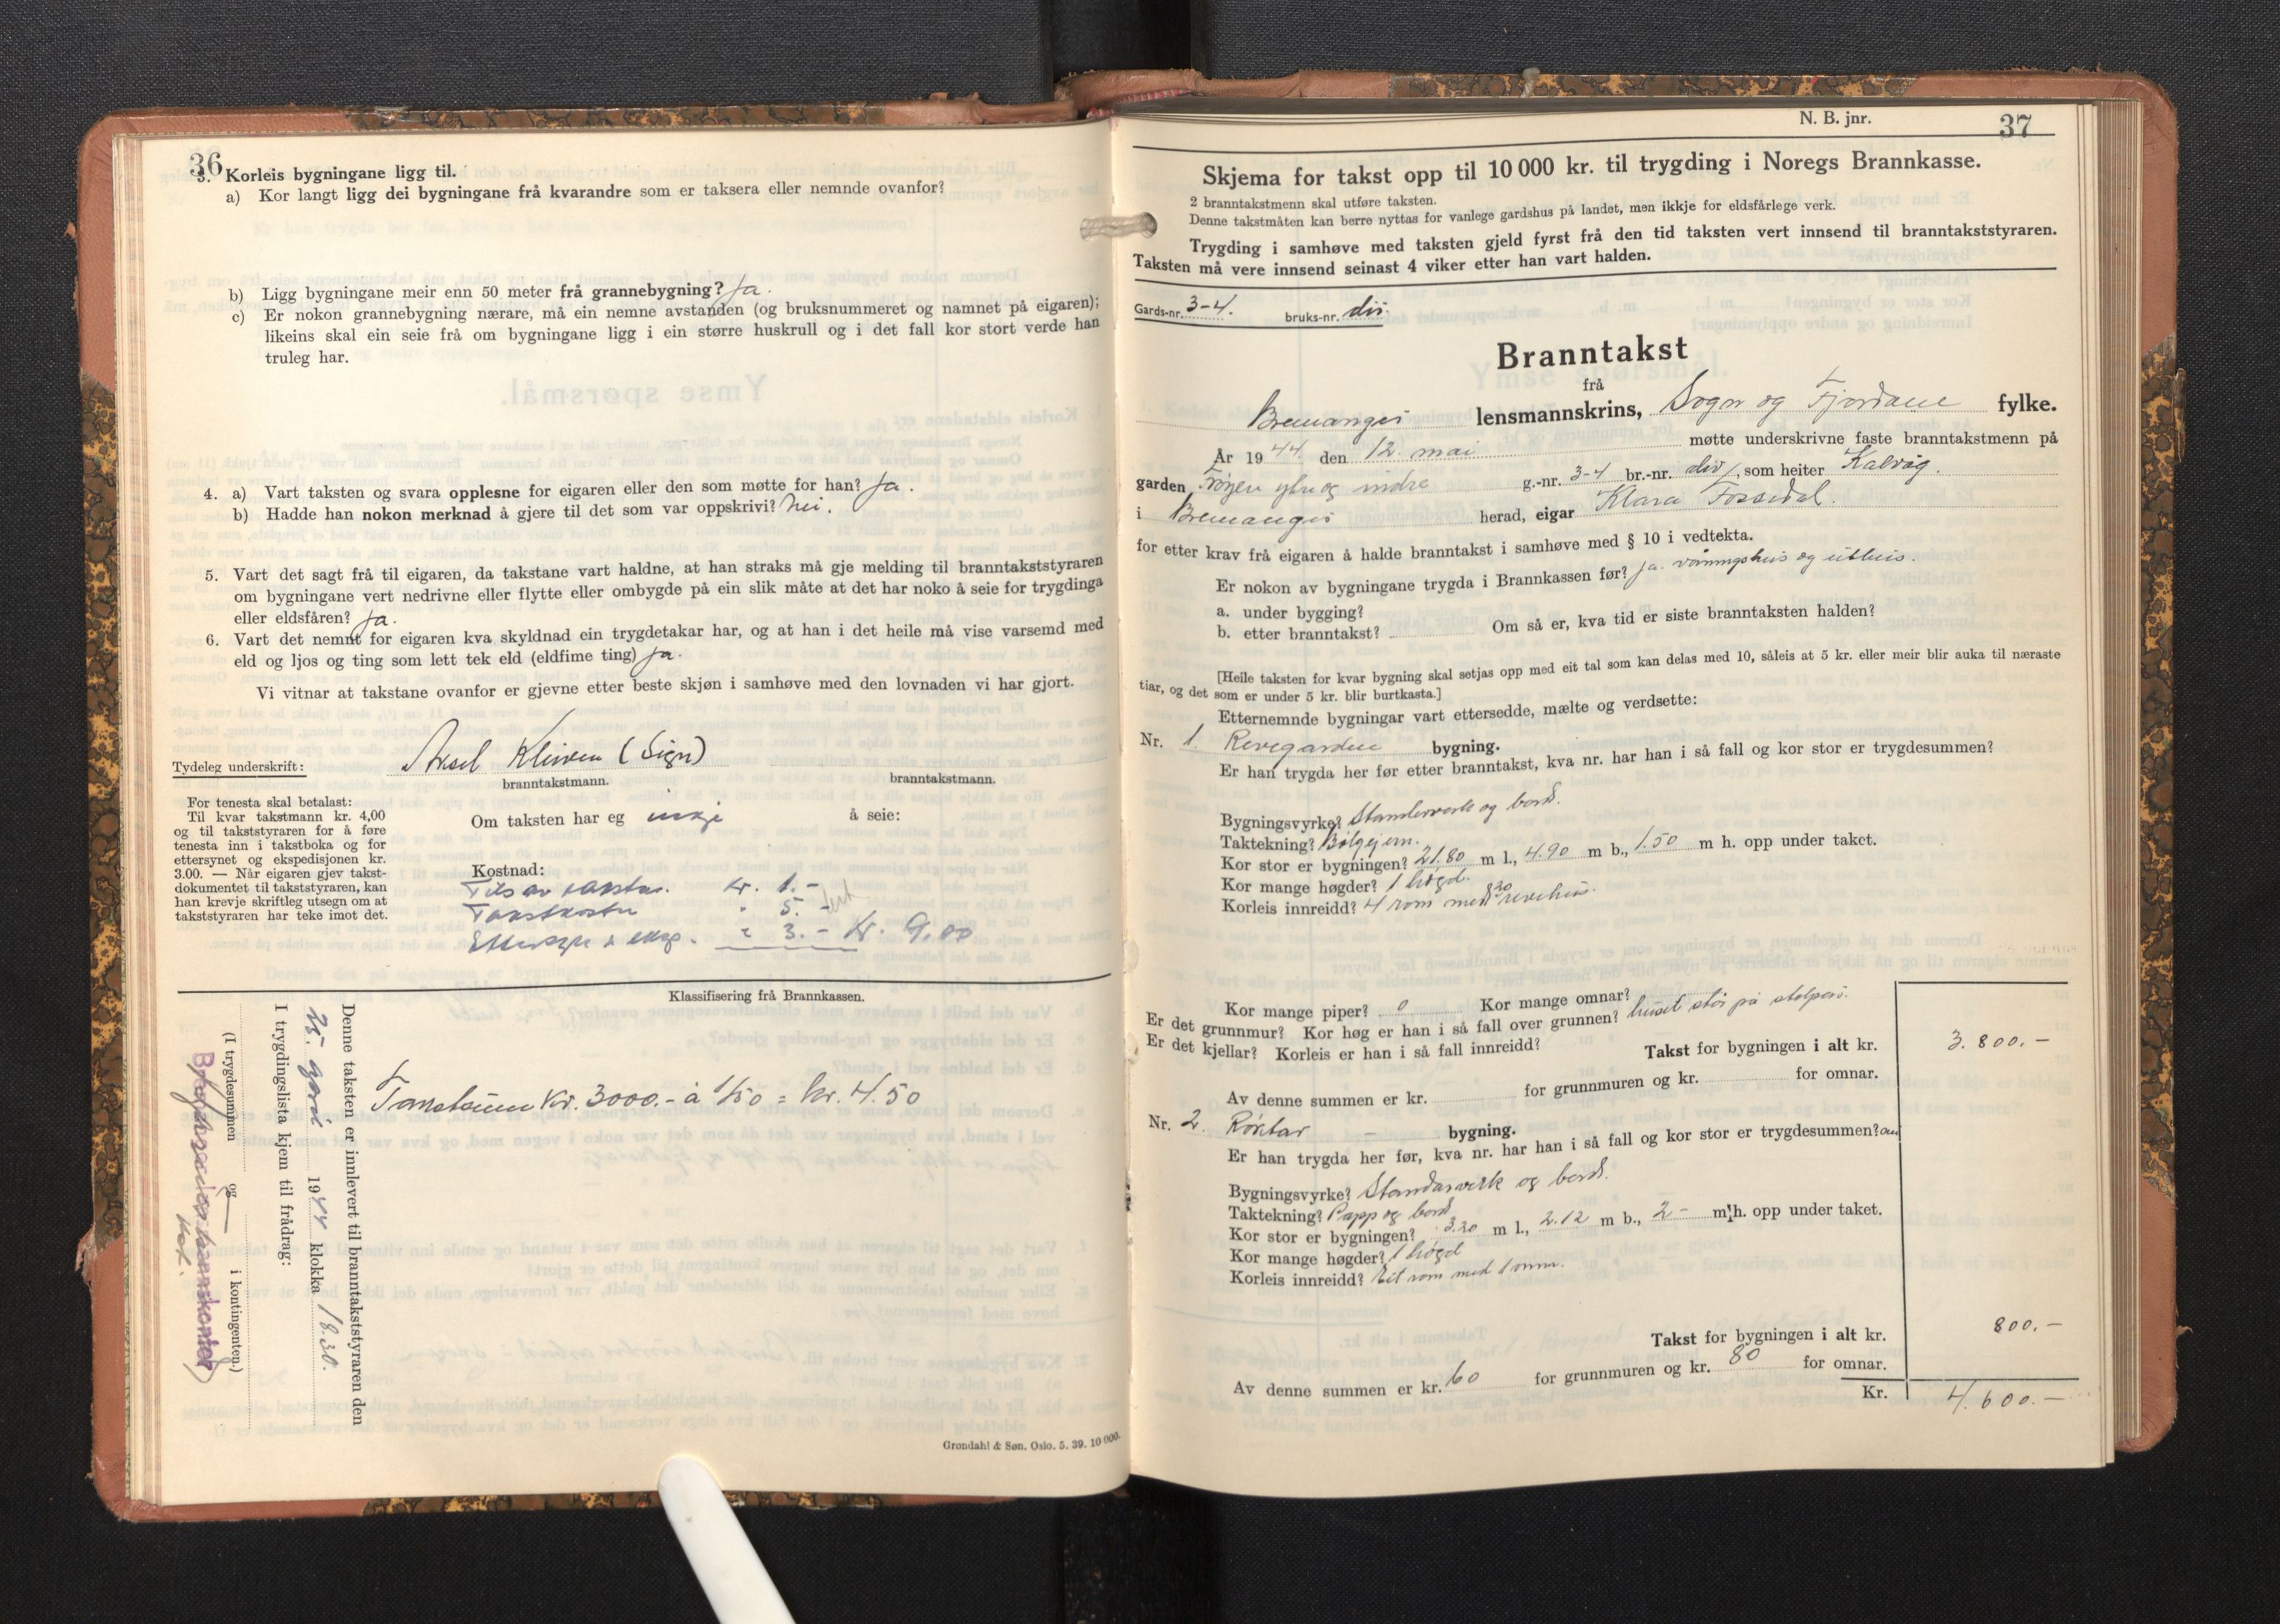 36
3. Korleis bygningane ligg til.
a) Kor langt ligg dei bygningane frå kvarandre som er taksera eller nemnde ovanfor?
b) Ligg bygningane meir enn 50 meter frå grannebygning? Ja.
c) Er nokon grannebygning nærare, må ein nemne avstanden (og bruksnummeret og namnet på eigaren);
likeins skal ein seie frå om bygningane ligg i ein større huskrull og i det fall kor stort verde han
truleg har.
4. a) Vart taksten og svara opplesne for eigaren eller den som møtte for han? Ja.
b) Hadde han nokon merknad å gjere til det som var oppskrivi? Nei.
5. Vart det sagt frå til eigaren, da takstane vart haldne, at han straks må gje melding til branntakststyraren
om bygningane vert nedrivne eller flytte eller ombygde på ein slik måte at det har noko å seie for trygdinga
eller eldsfåren? Ja.
6. Vart det nemnt for eigaren kva skyldnad ein trygdetakar har, og at han i det heile må vise varsemd med
eld og ljos og ting som lett tek eld (eldfime ting) Ja.
Vi vitnar at takstane ovanfor er gjevne etter beste skjøn i samhøve med den lovnaden vi har gjort.
Tydeleg underskrift: Aksel Kliven (Sign)
branntakstmann. branntakstmann.
For tenesta skal betalast:
Til kvar takstmann kr. 4,00
og til takststyraren for å føre
tenesta inn i takstboka og for
ettersynet og ekspedisjonen kr.
3.00. — Når eigaren gjev takst-
dokumentet til takststyraren, kan
han krevje skriftleg utsegn om at
takststyraren har teke imot det.
Om taksten har eg inkje å seie:
Kostnad:
Tils av takstm. kr. 1.-
Takstkostn " 5.-
Ettersyn & eksp. " 3.- Kr. 9.00
Klassifisering frå Brannkassen.
Takstsum Kr. 3000.- à 1.50 = kr. 4.50
Denne taksten er innlevert til branntakststyraren den
25. april 1944 klokka 18.30.
I trygdingslista kjem til frådrag:
(I trygdesummen og i kontingenten.)
Grøndahl & Søn. Oslo. 5. 39. 10 000.
N. B. jnr. 37
Skjema for takst opp til 10 000 kr. til trygding i Noregs Brannkasse.
2 branntakstmenn skal utføre taksten.
Denne takstmåten kan berre nyttas for vanlege gardshus på landet, men ikkje for eldsfårlege verk.
Trygding i samhøve med taksten gjeld fyrst frå den tid taksten vert innsend til branntakststyraren.
Taksten må vere innsend seinast 4 viker etter han vart halden.
Gards-nr. 3-4. bruks-nr. div.
Branntakst
frå
Bremanger lensmannskrins, Sogn og Fjordane fylke.
År 1944. den 12. mai møtte underskrivne faste branntakstmenn på
garden Frøyen ytre og indre g.-nr. 3-4 br.-nr. div, som heiter Kalvåg.
i Bremanger herad, eigar Klara Fossedal.
for etter krav frå eigaren å halde branntakst i samhøve med § 10 i vedtekta.
Er nokon av bygningane trygda i Brannkassen før? Ja. våningshus og uthus.
a. under bygging?
b. etter branntakst? Om så er, kva tid er siste branntaksten halden?
[Heile taksten for kvar bygning skal setjas opp med eit tal som kan delas med 10, såleis at 5 kr. eller meir blir auka til næraste
tiar, og det som er under 5 kr. blir burtkasta.]
Etternemnde bygningar vart ettersedde, mælte og verdsette:
Nr. 1. Revegarden bygning.
Er han trygda her før etter branntakst, kva nr. har han i så fall og kor stor er trygdesummen?
Bygningsvyrke? Standerverk og bord.
Taktekning? Bølgejern.
Kor stor er bygningen? 21.80 m l., 4.90 m b., 1.50 m h. opp under taket.
Kor mange høgder? 1 høgd.
Korleis innreidd? 4 rom med 20 revehus.
Kor mange piper? 0 Kor mange omnar?
Er det grunnmur? Kor høg er han i så fall over grunnen? huset står på stolpar.
Er det kjellar? Korleis er han i så fall innreidd?
Takst for bygningen i alt kr. 3.800.-
Av denne summen er kr. for grunnmuren og kr. for omnar.
Nr. 2. Røktar - bygning.
Er han trygda her før, kva nr. har han i så fall og kor stor er trygdesummen?
Bygningsvyrke? Standarverk og bord.
Taktekning? Papp og bord
Kor stor er bygningen? 3.20 m l., 2.12 m b., 2- m h. opp under taket.
Kor mange høgder? 1 høgd
Korleis innreidd? Eit rom med 1 omn.
Takst for bygningen i alt kr. 800.-
Av denne summen er kr. 60 for grunnmuren og kr. 80 for omnar.
Kr. 4.600.-